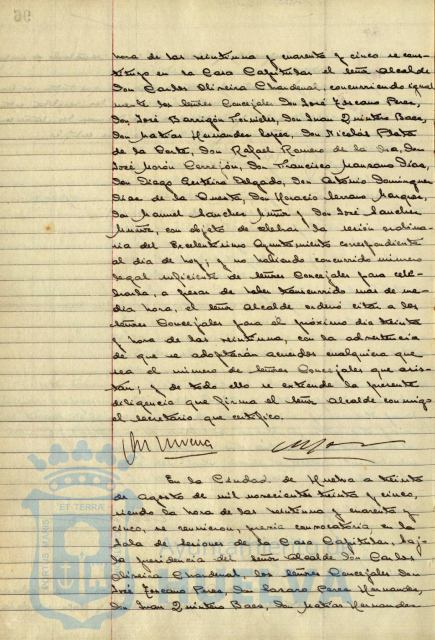 hora de las veintiuna y cuarenta y cinco se cons-
tituyó en la Casa Capitular el Señor Alcalde
Don Carlos Oliveira Chardenal, concurriendo igual-
mente los Señores Concejales Don José Lescano Perez,
Don José Barrigón, Don Juan Quintero Baez,
Don Matías Hernandez Lopez, Don Nicolás Plata
de la Corte, Don Rafael Romero de la, Don
José Morón Carrejón, Don Francisco Manzano Díaz,
Don Diego Delgado, Don Antonio Dominguez
Díaz de la Cuesta, Don Horacio Serrano Marquez,
Don Manuel Sanchez Muñiz y Don José Sanchez
Muñiz, con objeto de celebrar la sesión ordina-
ria del Excelentísimo Ayuntamiento correspondiente
al día de hoy; y no habiendo concurrido número
legal suficiente de Señores Concejales para cele-
brarla, a pesar de haber transcurrido mas de me-
dia hora, el Señor Alcalde ordenó citar a los
Señores Concejales para el próximo día treinta
y hora de las veintiuna, con la advertencia
de que se adoptarán acuerdos cualquiera que
sea el número de Señores Concejales que asis-
tan; y de todo ello se extiende la presente
diligencia que firma el Señor Alcalde conmigo
el Secretario que certifico.
En la Ciudad de Huelva a treinta
de Agosto de mil novecientos treinta y cinco,
siendo la hora de las veintiuna y cuarenta y
cinco, se reunieron, previa convocatoria, en la
Sala de Sesiones de la Casa Capitular, bajo
la presidencia del Señor Alcalde Don Carlos
Oliveira Chardenal, los Señores Concejales Don
José Lescano Perez, Don Lazaro Perez Hernandez,
Don Juan Quintero Baez, Don Matías Hernandez
PORTUS MARIS
ET TERRÆ